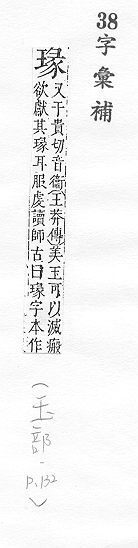 38
字彙補
瑑
又于貴切音衞王莽傳美玉可以滅瘢
欲獻其瑑耳服虔讀師古曰瑑字本作
(玉部-P.132)